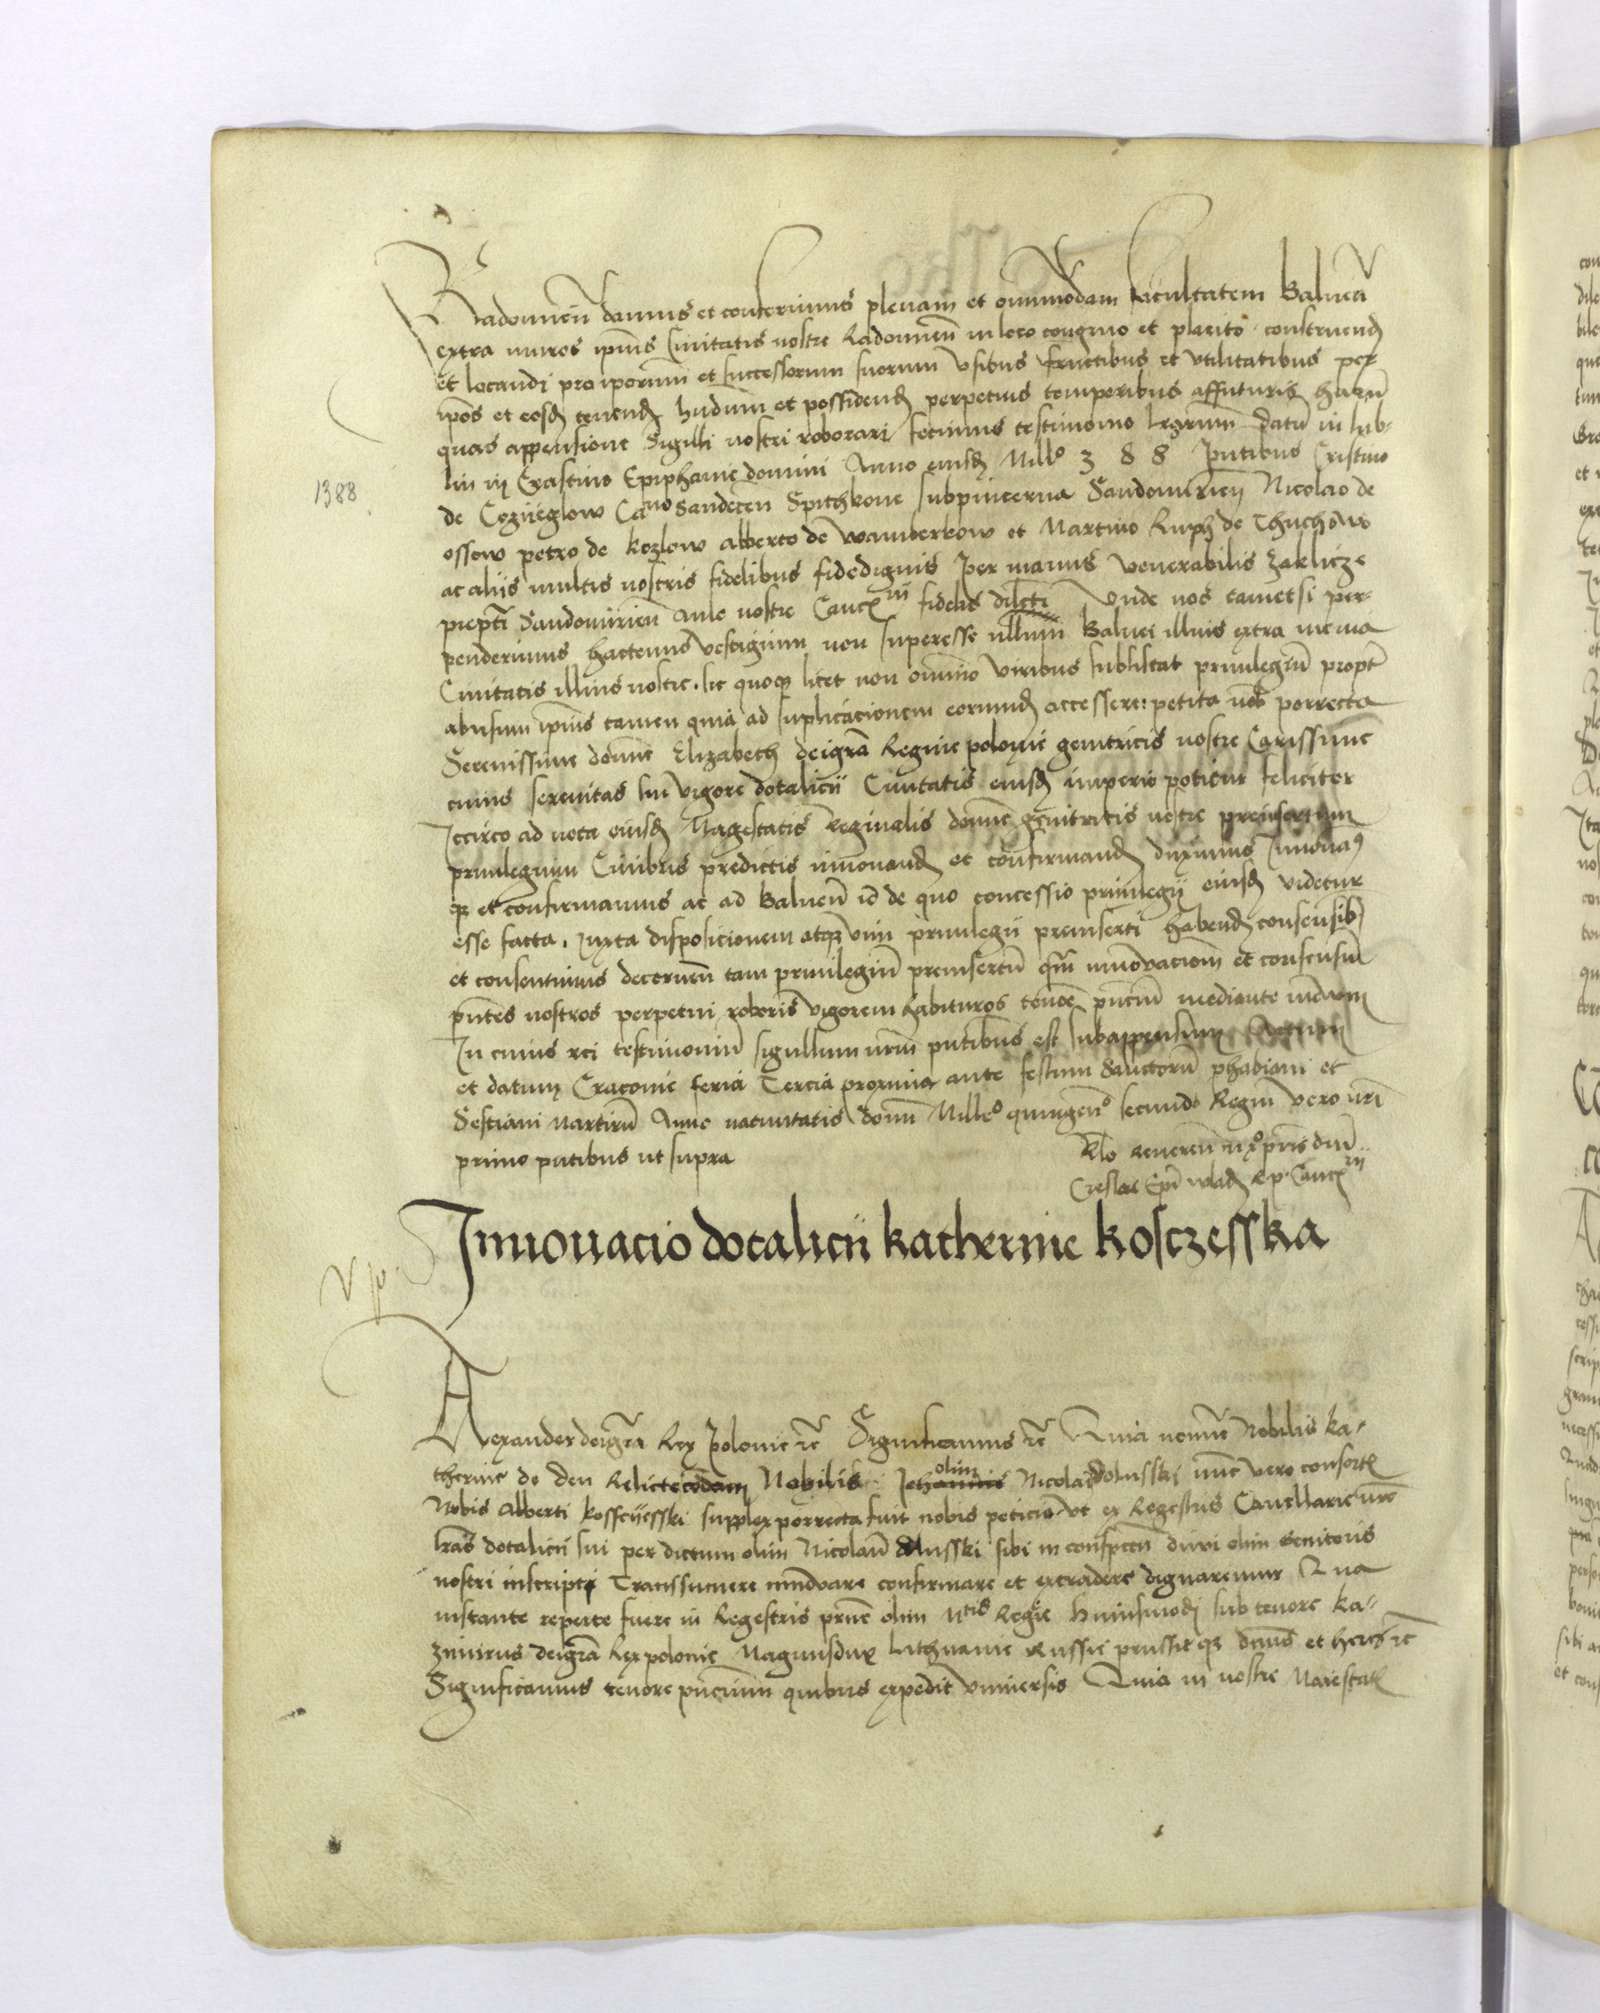 Radomien̄ damus et conferimus plenam et omnimodam facultatem Balneā
extra muros ipīus Civitatis nostre Radomien̄ in loco congruo et placito construend̄
et locandi pro ipsorum et successorum suorum usibus fructibus et utilitatibus per
ipōs et eosd̄ tenend̄ hndum̄ et possidend̄ perpetuis temporibus affuturis harū
quas appensione Sigilli nostri roborari fecimus testimonio lr̄arum datū in lub-
lin in Crastino Epiphanie domini Anno eiusd̄ Millo 3 8 8 pn̄tibus Cristino
1388
de Cozneglow Cano Sandecen̄ Spithkone subpincerna Sandomirien̄ Nicolao de
ossow petro de kozlow alberto de wamberkow et Martino Ruph de Thuchow
ac aliis multis nostris fidelibus fidedignis per manus venerabilis zaklicze
prepti Sandomirien̄ aule nostre Cancrii fidelis dilecti Unde nos tametsi per-
penderimus hactenus vestigium non superesse ullum Balnei illius extra menia
Civitatis illius nostre, sic quoqz licet non omnino viribus subsistat privilegiū propt̄
abusum ipīus tamen quia ad suplicacionem eorumd̄ accessere petita nob porrecta
Serenissime domne Elizabeth deigrā Regine polonie genitricis nostre Carissime
cuius serenitas sui vigore dotalicii Civitatis eiusd̄ imperio potitur feliciter
Iccirco ad vota eiusd̄ Magestatis Reginalis domne genitricis nostre preinsertum
privilegium Civibus predictis innovand̄ et confirmand̄ duximus Innova9
qz et confirmamus ac ad Balneū id de quo concessio privilegii eiusd̄ videtur
esse facta, iuxta disposicionem atqz vim privilegii preinserti habend̄ consensib
et consentimus decernen̄ tam privilegiū preinsertū qm̄ innovacionē et consensum
pn̄tes nostros perpetui roboris vigorem habituros tenore pn̄ciū mediante in evum
In cuius rei testimoniū sigullum nrm̄ pn̄tibus est subappensum Actum
et datum Cracovie feria Tercia proxima ante festum Sanctorū phabiani et
Sestiani Martirū Anno nativitatis domn̄ Milleo quingen̄o secundo Regni vero nri
primo pn̄tibus ut supra
Rlo Reveren̄ in xo pr̄is dni
Creslai Epi wlad R p Cancrii
Innovacio dotalicii katherine kosczesska
V p
Alexander deigrā Rex polonie rc̄ Significamus rc̄ Quia nomine Nobilis ka-
therine de Den Relicte codam Nobilis Johannis olim Nicolai dolusski nunc vero consortē
Nobis alberti kossczesski supplex porrecta fuit nobis peticio ut ex Regestris Cancellarie nre
lrās dotalicii sui per dictum olim Nicolaū dolusski sibi in conspectu divi olim Genitoris
nostri inscripti Transsumere innovare confirmare et extradere dignaremur Qua
instante reperte fuere in Regestris prnē olim Mtis Regie huiusmodi sub tenore ka-
zmirus deigrā Rex polonie Magnusdux Lithuanie Russie prussie qz dnūs et heres rc̄
Significamus tenore pn̄cium quibus expedit universis Quia in nostre Maiestatē